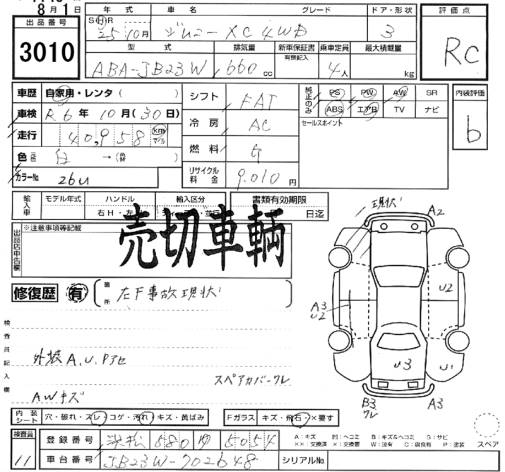 8月1日
出品番号
3010
年式 車名 グレード ドア・形状
SHR 25年10月 ジムニー XC 4WD 3
型式 排気量 新車保証書 乗車定員 最大積載量
有無記入
ABA-JB23W 660cc 4人 kg
評価点
RC
車歴 自家用・レンタ
車検 R6年10月(30日)
走行 40,958 km マイル
色 白→(替)
カラーNo 26U
シフト FAT
冷房 AC
燃料 G
リサイクル料金 9,010円
純正のみ PS PW AW SR
ABS エアB TV ナビ
セールスポイント
内装評価
b
輸入車 モデル年式 ハンドル 輸入区分 書類有効期限
右H・左 日迄
出品店申告欄
※注意事項等記載
売切車輌
修復歴 有 箇所 左F事故現状
検査員記入欄
外装A.U.Pアセ
スペアカバークレ
AWキズ
現状
A2
A3
U2
U2
U3
U1
B3
クレ
A3
内装シート 穴・破れ・スレ・コゲ・汚れ・キズ・黄ばみ
Fガラス キズ・飛石・×要す
スペア
検査員
11
登録番号 浜松 580
車台番号 JB23W-702648
シリアルNo
A:キズ P:ヘコミ B:キズ&ヘコミ G:サビ